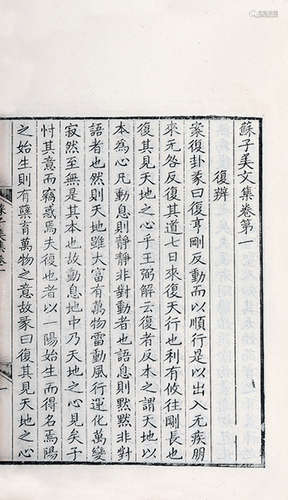 蘇子美文集卷第一
復辨
復卦彖曰復亨剛反動而以順行是以出入无疾朋
來无咎反復其道七日來復天行也利有攸往剛長也
復其見天地之心乎王弼解云復者反本之謂天地以
本為心凡動息則靜靜非對動者也語息則黙黙非對
語者也然則天地雖大富有萬物雷動風行運化萬變
寂然至無是其本故動息地中乃天地之心見矣予
忖其意而竊惑焉夫復也者以一陽始生而得名焉陽
之始生則有育萬物之意故彖曰復其見天地之心